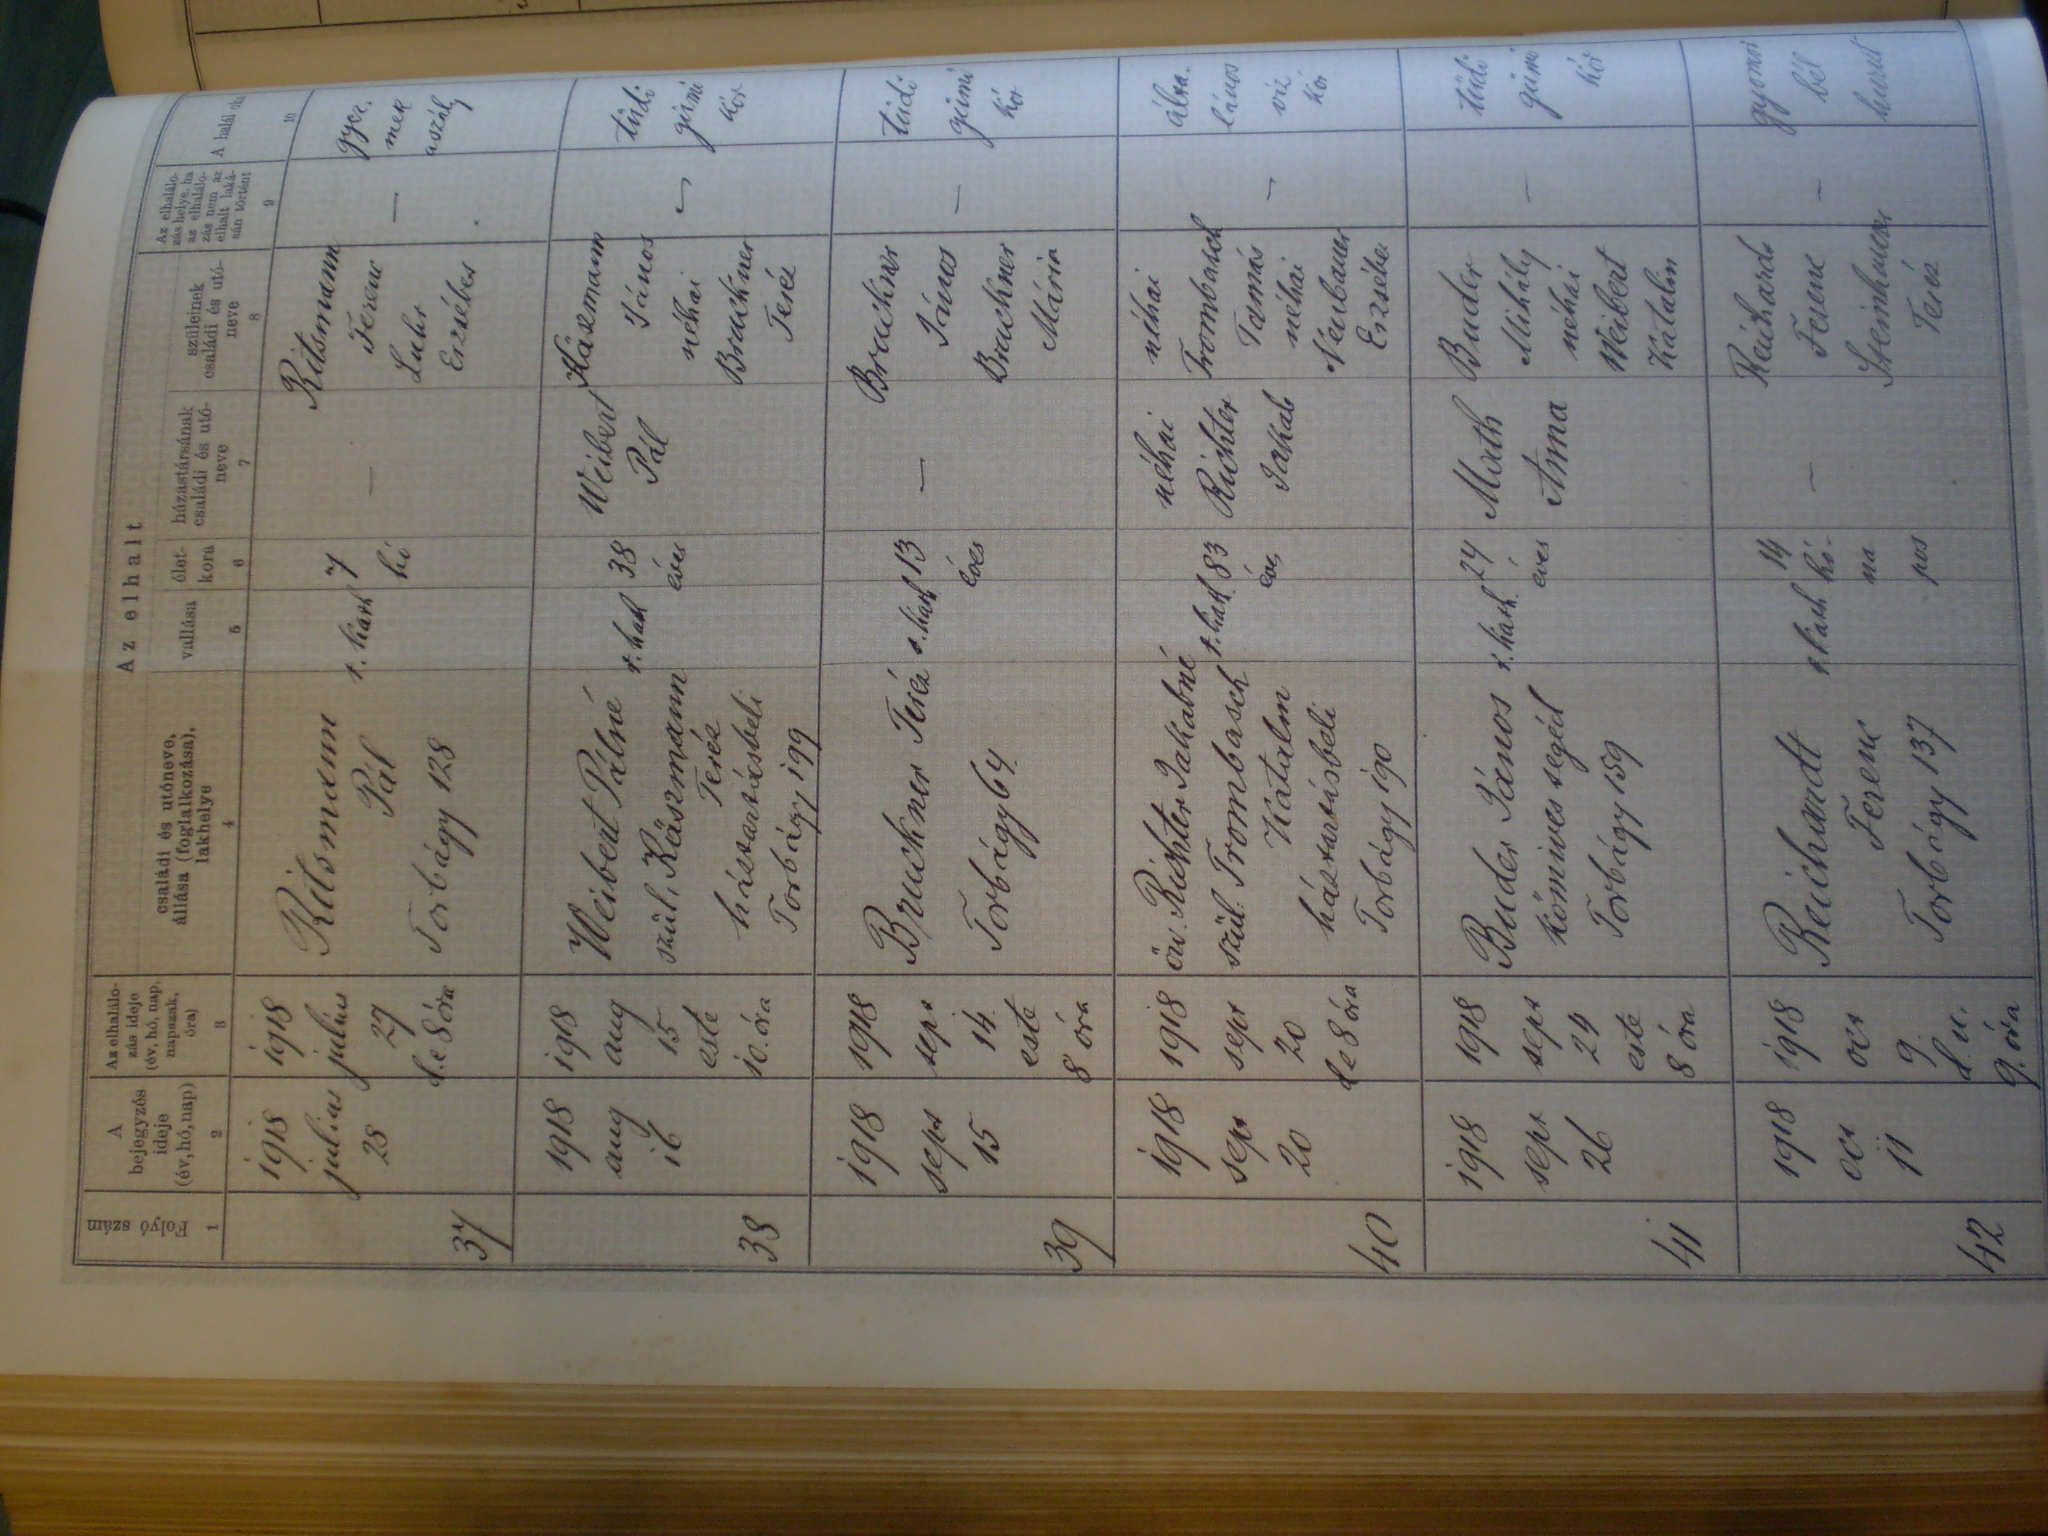 Az elhalt
Folyó szám
A bejegyzés ideje (év, hó, nap)
Az elhalálo-
zás ideje
(év, hó, nap,
napszak,
óra)
családi és utóneve,
állása (foglalkozása),
lakhelye
vallása
élet-
kora
házastársának
családi és utó-
neve
szüleinek
családi és utó-
neve
Az elhalálo-
zás helye, ha
az elhalálo-
zás nem az
elhalt laká-
sán történt
A halál oka
1 2 3 4 5 6 7 8 9 10
37
1918
julius
28
1918
julius
27
d.e 8 óra
Ritsmann
Pál
Torbágy 128
r. kath
7
hó
—
Ritsmann
Ferenc
Erzsébet
—
gyer,
mek
aszály
38
1918
aug
16
1918
aug
15
este
10. óra
Weibert Pálné
szül, Käszmann
Teréz
háztartásbeli
Torbágy 199
r. kath
38
éves
Weibert
Pál
Käszmann
János
néhai
Bruckner
Teréz
—
tüdö
gümö
kór
39
1918
sept
15
1918
sept
14
este
8 óra
Bruckner Teréz
Torbágy 64
r. kath
13
éves
—
Bruckner
János
Bruckner
Mária
—
tüdö
gümö
kór
40
1918
sept
20
1918
sept
20
de 8 óra
öv. Richter Jakabné
szül. Trombasch
Katalin
háztartásbeli
Torbágy 190
r. kath
83
éves
néhai
Richter
Jakab
néhai
Trombasch
Tamás
néhai
Neubauer
Erzsébet
—
álta,
lános
viz
kór
41
1918
sept
26
1918
sept
24
este
8 óra
Buder János
kömives segéd
Torbágy 159
r. kath
24
éves
Muth
Anna
Buder
Mihály
néhai
Weibert
Katalin
—
tüdö
gümö
kór
42
1918
oct
11
1918
oct
9.
d. u.
9. óra
Reichardt
Ferenc
Torbágy 137
r. kath
14
hó-
na
pos
—
Reichardt
Ferenc
Steinhauser
Teréz
—
gyomor
bél
hurut